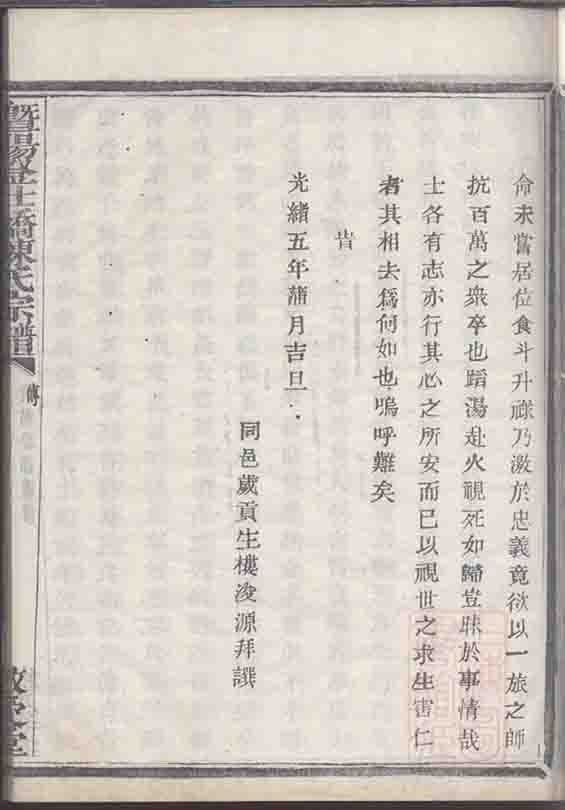 命未嘗居位食斗升祿乃激於忠義竟欲以一旅之師
抗百萬之衆卒也蹈湯赴火視死如歸豈昧於事情哉
士各有志亦行其心之所安而已以視世之求生害仁
者其相去爲何如也嗚呼難矣
旹
光緒五年蒲月吉旦
同邑歲貢生樓浚源拜譔
暨陽金士橋陳氏宗譜
傳